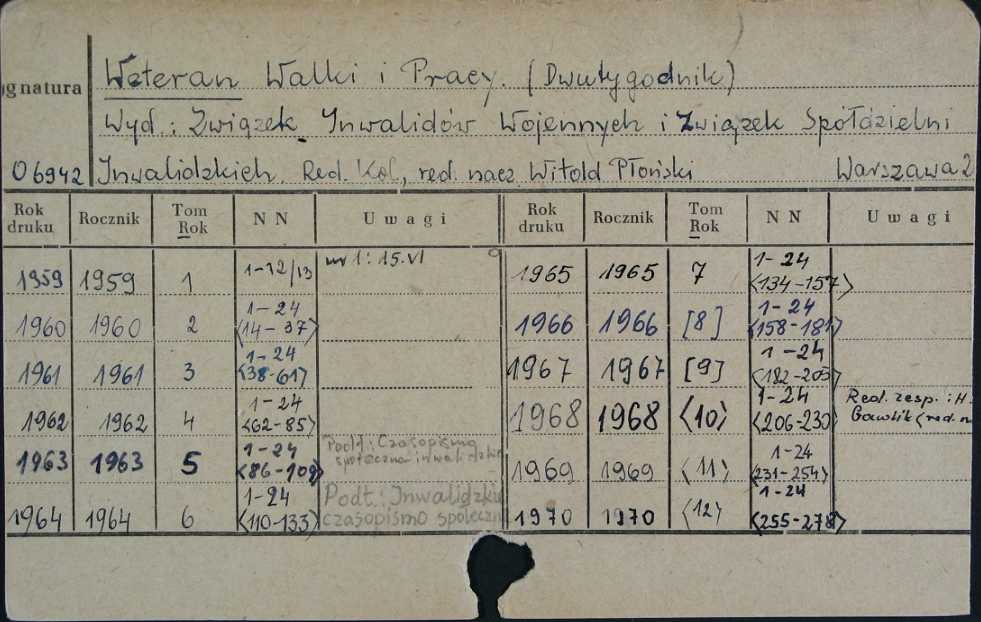 Weteran Walki i Pracy. (Dwutygodnik)
gnatura
Wyd.: Związek Inwalidów Wojennych i Związek Spółdzielni
O6942 Inwalidzkich. Red. Kol., red. nacz. Witold Płoński Warszawa 2
Rok druku Rocznik Tom Rok NN Uwagi Rok druku Rocznik Tom Rok NN Uwagi
1959 1959 1 1-12/13 nr 1: 15.VI 1965 1965 7 1-24 <134-157>
1960 1960 2 1-24 <14-37> 1966 1966 [8] 1-24 <158-181>
1961 1961 3 1-24 <38-61> 1967 1967 [9] 1-24 <182-205>
1962 1962 4 1-24 <62-85> 1968 1968 <10> 1-24 <206-230> Red. zesp.: H. Gawlik (red. n
1963 1963 5 1-24 <86-109> Podt: Czasopismo społeczno inwalidzkie 1969 1969 <11> 1-24 <231-254>
1964 1964 6 1-24 <110-133> Podt: Inwalidzkie czasopismo społeczn 1970 1970 <12> 1-24 <255-278>